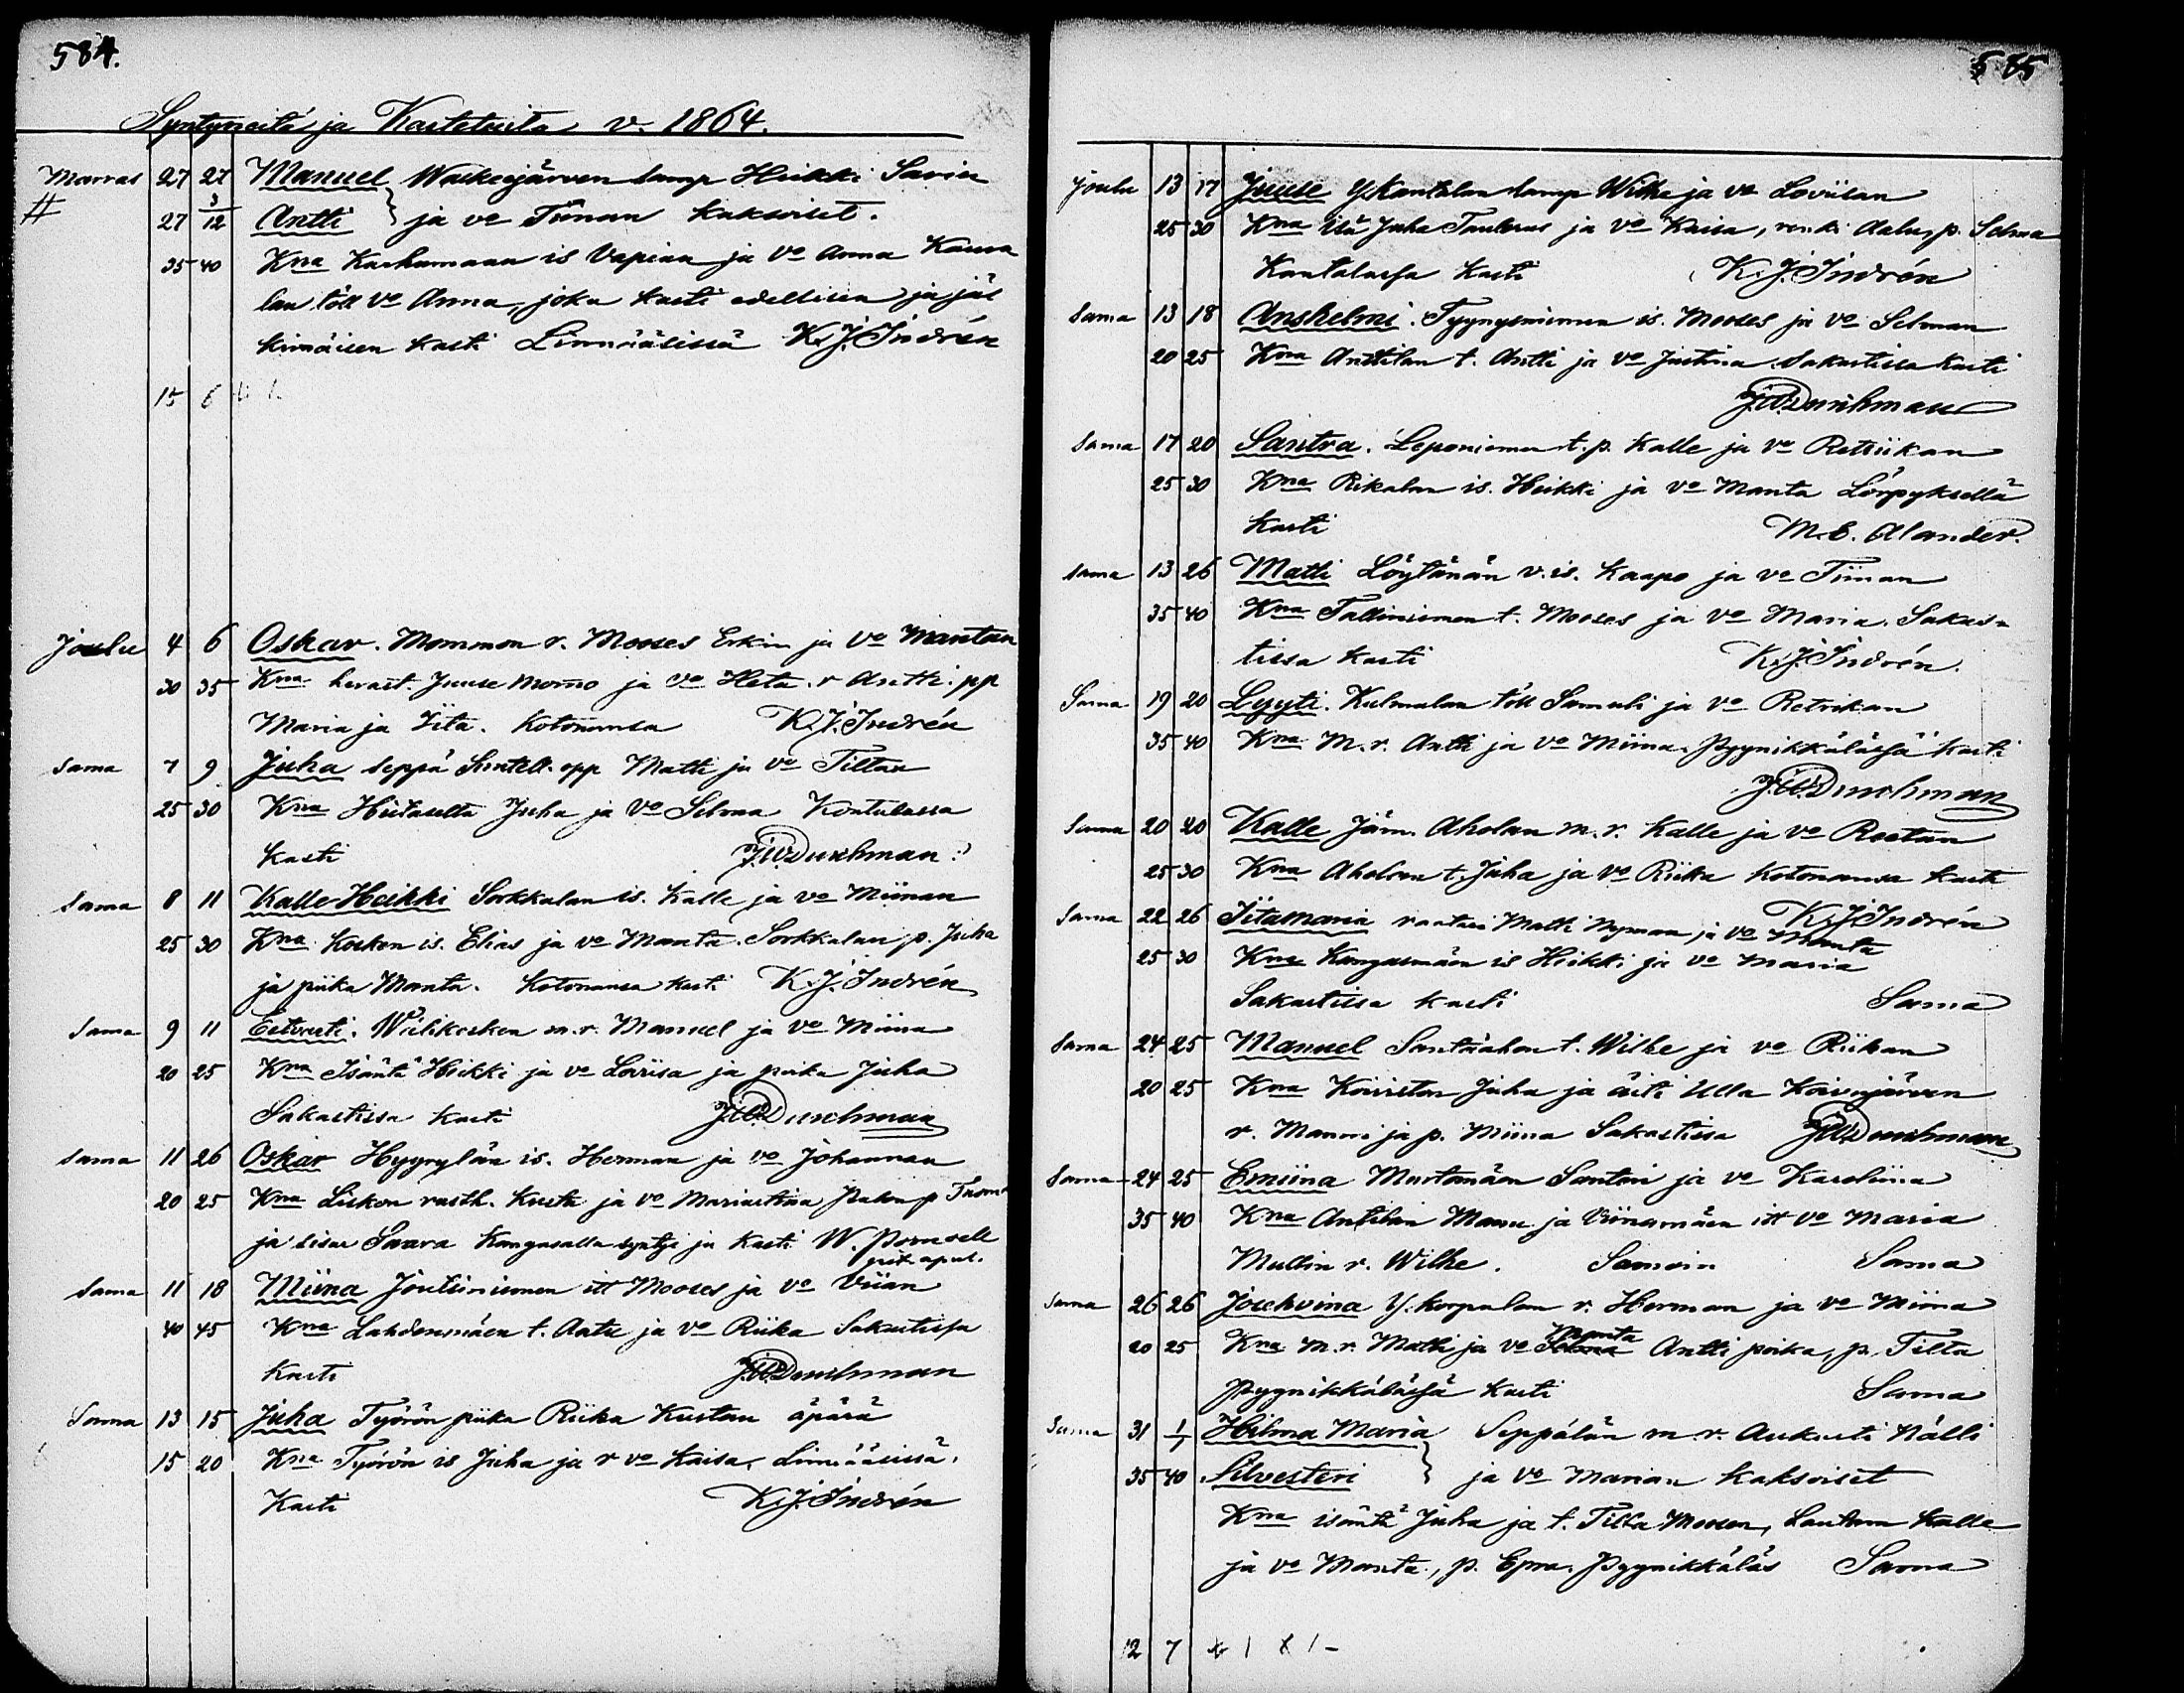 584.
Syntyneitä ja Kastetuita v. 1864.
Marras 27 27 Manuel Waskeejärven lamp Heikki Savin
# 27 3/12 Antti ja vo Tiinan kaksoiset.
35 40 Kna Karhumaan is Vapiaa ja vo Anna
lan töll vo Anna, joka kasti edellisen ja jäl
kimäisen kasti Linnääisissä K.J. Indrén
15 6
Joulu 4 6 Oskar. Mommon r. Mooses Erkin ja vo Mantan
30 35 Kna herast. Juuse Mommo ja vo Heta. r Antti. pp
Maria ja Iita. Kotonansa K.J. Indrén
Sama 7 9 Juha seppä Suntell. opp Matti ja vo Tiltan
25 30 Kna Hietaselta Juha ja vo Selma Kontulassa
Kasti J.W. Durchman
Sama 8 11 Kalle-Heikki Sorkkalan is. Kalle ja vo Miinan
25 30 Kna Kosken is. Elias ja vo Manta. Sorkkalan p. Juha
ja piika Manta. Kotonansa kasti K.J. Indrén
Sama 9 11 Eetvarti. Wälikosken m.r. Manuel ja vo Miina
20 25 Kna Isäntä Heikki ja vo Loviisa ja poika Juha
Sakastissa kasti J.W. Durchman
Sama 11 26 Oskar Hyyrylän is. Herman ja vo Johannan
20 25 Kna Liskon rusth. Kusta ja vo Mariastiina
ja sisar Saara Kangasalla syntyi ja kasti W.
pit. apul.
Sama 11 18 Miina Joutsiniemen itt Mooses ja vo Viian
40 45 Kna Lahdenmäen t. Antti ja vo Riika Sakastissa
Kasti J.W. Durchman
Sama 13 15 Juha Työrön piika Riika Kustan äpärä
15 20 Kna Työrön is Juha ja r vo Kaisa. Linnääisissä.
Kasti K.J. Indrén
585
Joulu 13 17 Juuse Y. Kantalan lamp Wilhe ja vo Loviisan
25 30 Kna isä Juha Taulerus ja vo Kaisa, renki Aalu, p. Selma
Kantalassa kasti K.J. Indrén
Sama 13 18 Anshelmi. Tyynyysniemen is. Mooses ja vo Selman
20 25 Kna Anttilan t. Antti ja vo Justiina Sakastissa kasti
J.W. Durchman
Sama 17 20 Santra. Leponiemen t.p. Kalle ja vo Retriikan
25 30 Kna Rikalan is. Heikki ja vo Manta Löpyksellä
kasti M.E. Alander.
Sama 13 26 Matti Löytänän v.is. Kaapo ja vo Tiinan
35 40 Kna Talliniemen t. Mooses ja vo Maria. Sakas=
tissa kasti K.J. Indrén.
Sama 19 20 Lyyti. Kulmalan töll Samuli ja vo Retrikan
35 40 Kna M.r. Antti ja vo Miina. Pyynikkälässä kasti
J.W. Durchman
Sama 20 20 Kalle Jäm. Aholan m.r. Kalle ja vo Reetan
25 30 Kna Aholan t. Juha ja vo Riika Kotonansa kasti
K.J. Indrén
Sama 22 26 Iitamaria raatari Matti Nyman ja vo Manta
25 30 Kna Kangasmäen is Heikki ja vo Maria
Sakastissa kasti Sama
Sama 24 25 Manuel Santaahon t. Wilhe ja vo Riikan
20 25 Kna Koiviston Juha ja äiti Ulla Koivujärven
r. Manni ja p. Miina Sakastissa J.W. Durchman
Sama 24 25 Emiina Murtomäen Santeri ja vo Karoliina
35 40 Kna Antilan Manu ja Viinamäen itt vo Maria
Mullin r. Wilhe. Samoin Sama
Sama 26 26 Josehviina Y. Korpulan r. Herman ja vo Miina
20 25 Kna m.r. Matti ja vo Manta Antti poika, p. Tilta
Pyynikkälässä kasti Sama
Sama 31 1/1 Hilma Maria Seppälän m.r. Aukusti Nälli
35 40 Silvesteri ja vo Marian kaksoiset
Kna isäntä Juha ja t. Tilta Moosen, Lauttum Kalle
ja vo Manta, p. Epra. Pyynikkäläs Sama
12 7